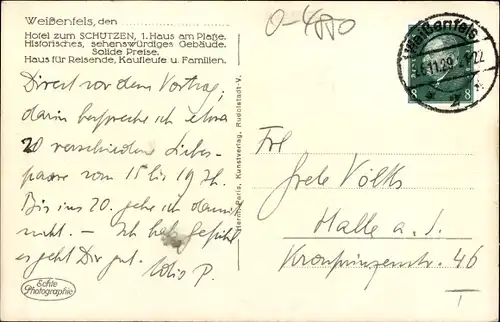 Weißenfels, den
Hotel zum SCHÜTZEN, 1. Haus am Platze.
Historisches, sehenswürdiges Gebäude.
Solide Preise.
Haus für Reisende, Kaufleute u. Familien.
Direkt vor dem Vortrag;
darin bespreche ich etwa
20 verschiedene Liebes-
paare vom 15 bis 19 Jh.
Bis ins 20. gehe ich damit
nicht. – Ich hab Gefühl
es geht Dir gut. P.
Echte
Photographie
Rudolstadt-V.
O-4880
Weißenfels
11.29
8 8
Frl.
Grete Völks
Halle a. S.
Kronprinzenstr. 46